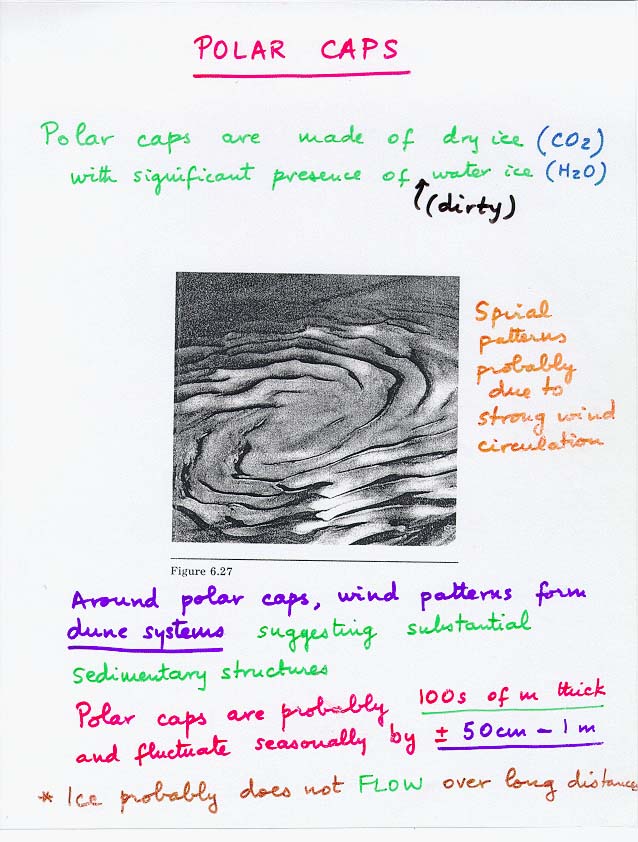 POLAR CAPS
Polar caps are made of dry ice (CO2)
with significant presence of water ice (H2O)
(dirty)
Spiral
patterns
probably
due to
strong wind
circulation
Figure 6.27
Around polar caps, wind patterns form
dune systems suggesting substantial
sedimentary structures
Polar caps are probably 100s of m thick
and fluctuate seasonally by ± 50cm - 1m
* Ice probably does not FLOW over long distances